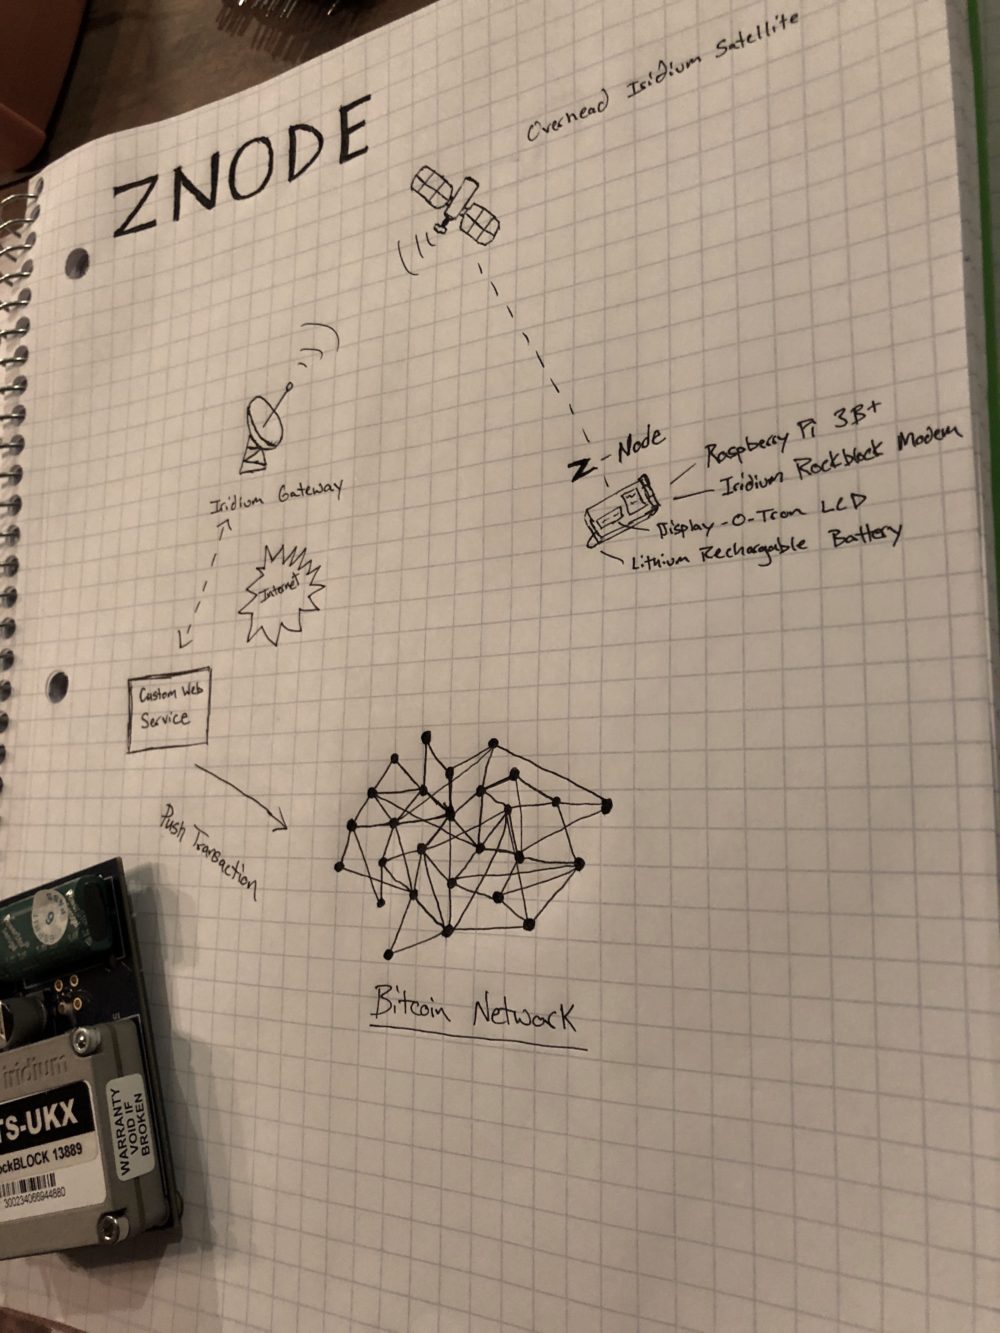 ZNODE
Overhead Iridium Satellite
Z-Node
Raspberry Pi 3B+
Iridium Rockblock Modem
Display-O-Tron LCD
Lithium Rechargable Battery
Iridium Gateway
Internet
Custom Web
Service
Push Transaction
Bitcoin Network
iridium
TS-UKX
ockBLOCK 13889
300234066944860
WARRANTY
VOID IF
BROKEN